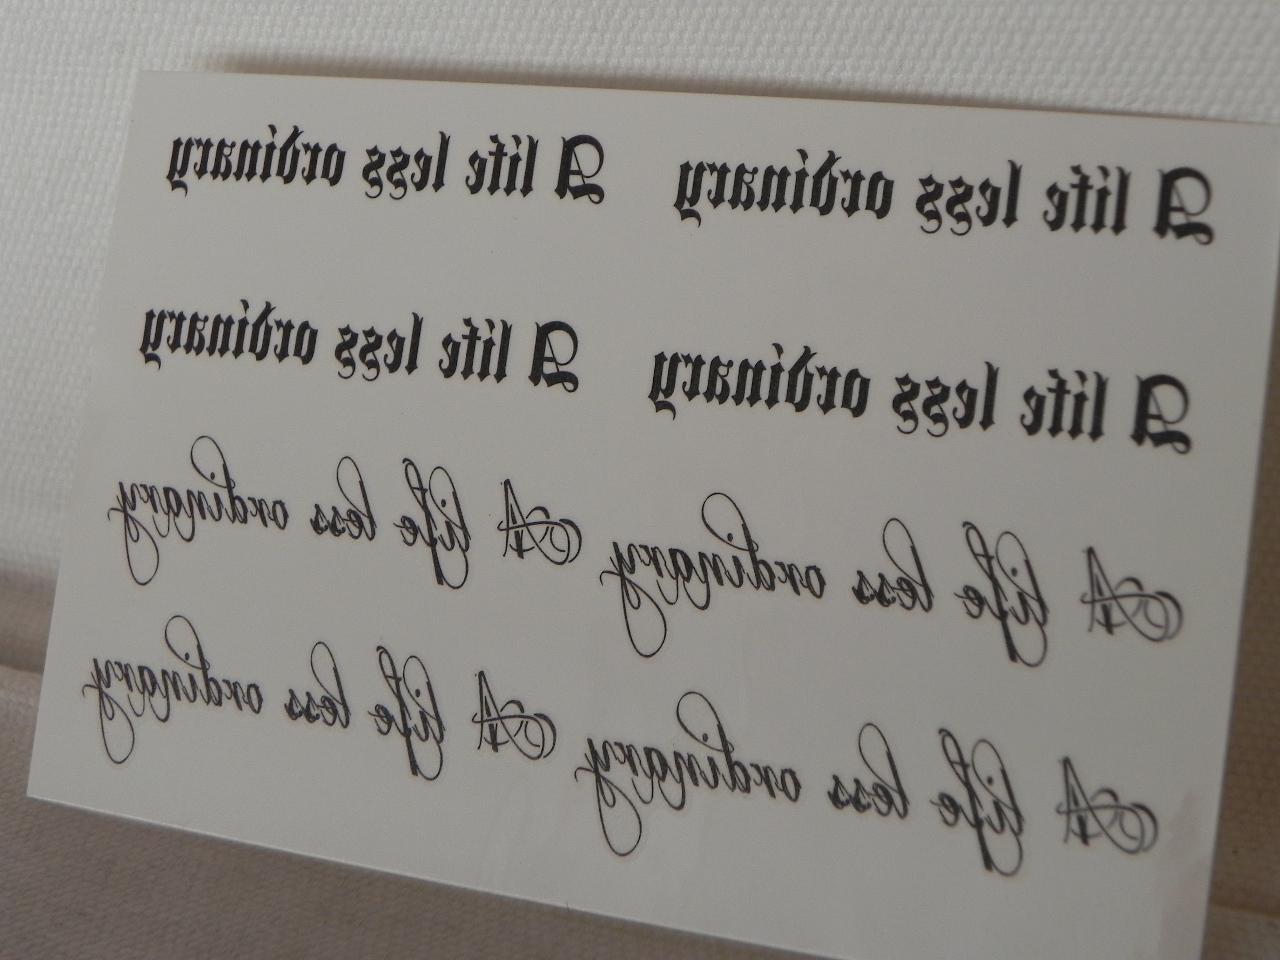 A life less ordinary A life less ordinary
A life less ordinary A life less ordinary
A life less ordinary A life less ordinary
A life less ordinary A life less ordinary